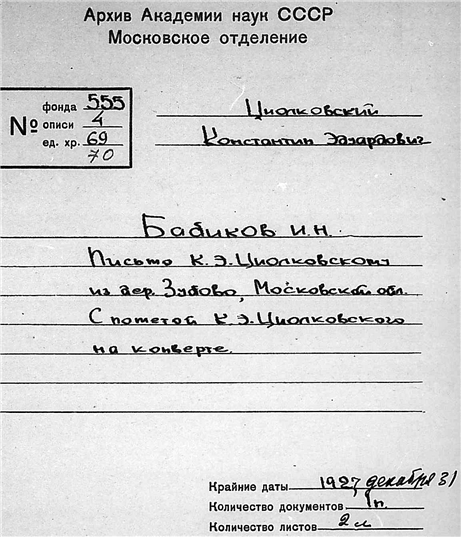 Архив Академии наук СССР
Московское отделение
№
фонда 555
описи 4
ед. хр. 69
70
Циолковский
Константин Эдуардович
Бабиков И.Н.
Письмо К.Э.Циолковскому
из дер. Зубово, Московской обл.
С пометой К.Э.Циолковского
на конверте.
Крайние даты 1927 декабря 31
Количество документов 1 п.
Количество листов 2 л